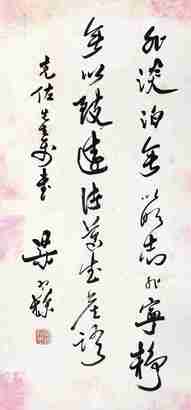 非淡泊無以明志非寧靜
無以致遠諸葛武侯語
克佐先生
梁